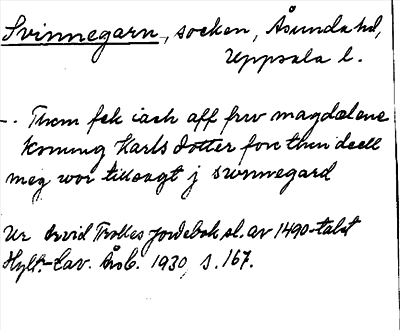 Svinnegarn, socken, Åsunda hd,
Uppsala l.
-. Them fek iach aff frw magdalene
konung Karls dotter fore then deell
meg wor tillsagt j swnnegard
Ur Arvid Trolles jordebok sl. av 1490-talet
Hylt.-Cav. Årsb. 1930, s. 167.